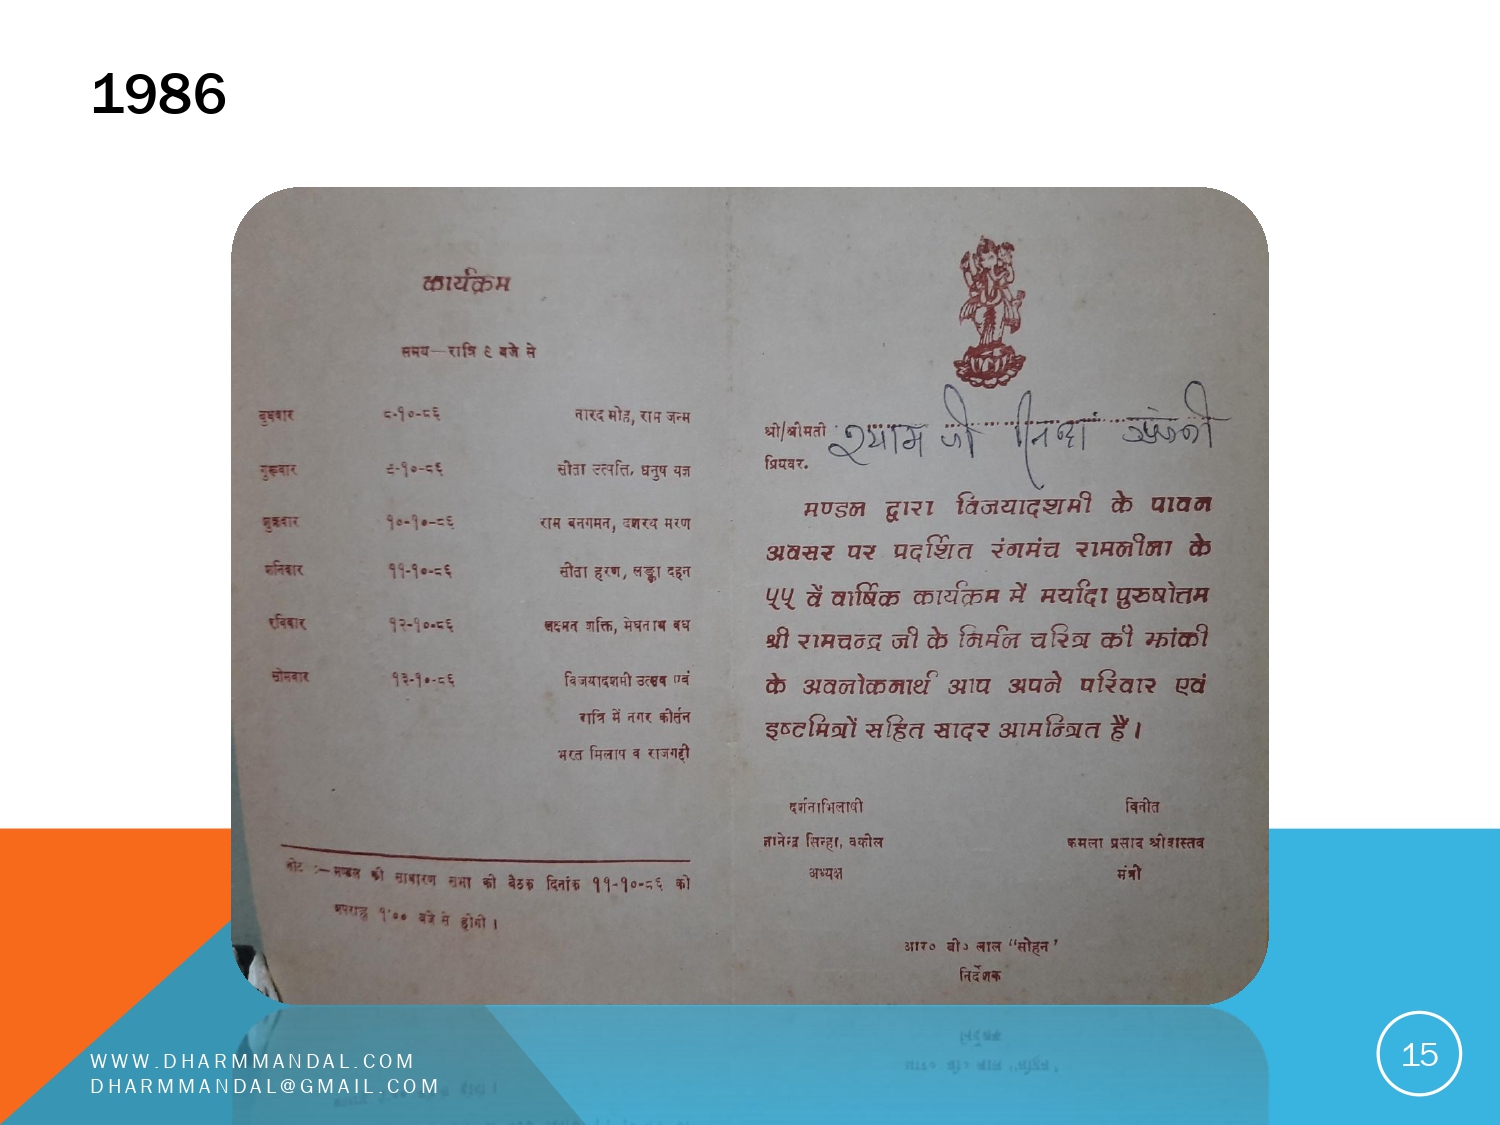 1986
कार्यक्रम
समय—रात्रि ९ बजे से
बुधवार ८-१०-८६ नारद मोह, राम जन्म
गुरूवार ९-१०-८६ सीता उत्पत्ति, धनुष यज्ञ
शुक्रवार १०-१०-८६ राम बनगमन, दशरथ मरण
शनिवार ११-१०-८६ सीता हरण, लङ्का दहन
रविवार १२-१०-८६ लक्ष्मन शक्ति, मेघनाथ बध
सोमवार १३-१०-८६ विजयादशमी उत्सव एवं
रात्रि में नगर कीर्तन
भरत मिलाप व राजगद्दी
नोट :— मण्डल की साधारण सभा की बैठक दिनांक ११-१०-८६ को
अपराह्न १'०० बजे से होगी ।
श्री/श्रीमती श्याम जी
प्रियवर.
मण्डल द्वारा विजयादशमी के पावन
अवसर पर प्रदर्शित रंगमंच रामलीला के
५५ वें वार्षिक कार्यक्रम में मर्यादा पुरुषोत्तम
श्री रामचन्द्र जी के निर्मल चरित्र की झांकी
के अवलोकनार्थ आप अपने परिवार एवं
इष्टमित्रों सहित सादर आमन्त्रित हैं ।
दर्शनाभिलाषी विनीत
ज्ञानेन्द्र सिन्हा, वकील कमला प्रसाद श्रीवास्तव
अध्यक्ष मंत्री
आर० बी० लाल "सोहन'
निर्देशक
WWW.DHARMMANDAL.COM
DHARMMANDAL@GMAIL.COM
15